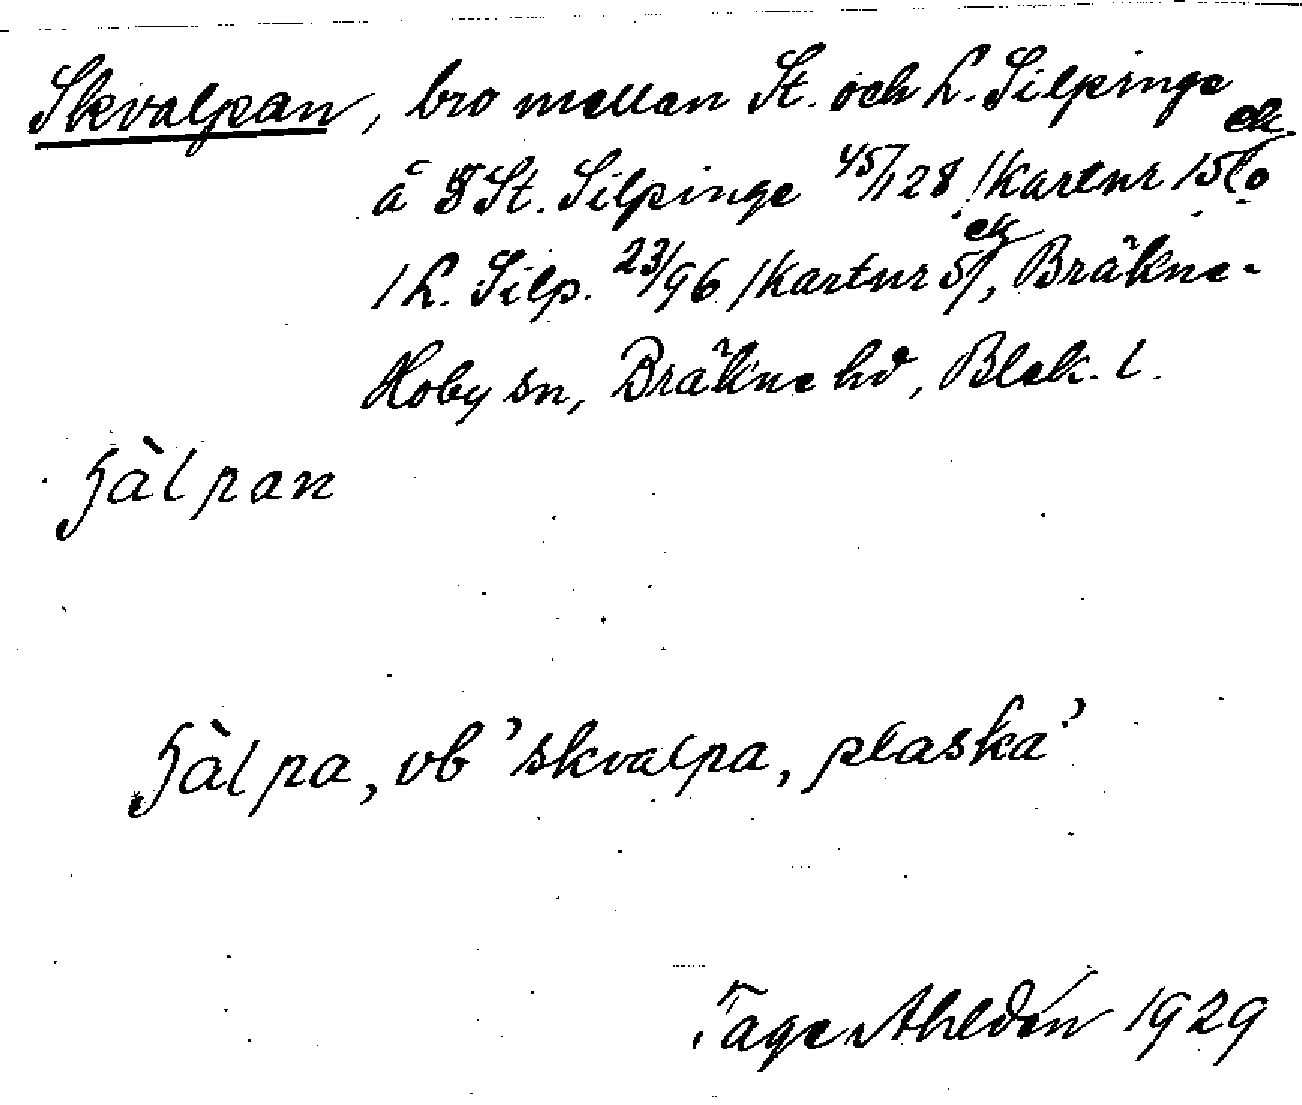 Skvalpan, bro mellan St. och L. Silpinge
å St. Silpinge 45/128 /kartnr 15 ek
/ L. Silp. 23/96 /kartnr 5/ ek, Bräkne-
Hoby sn, Bräkne hd, Blek. l.
ʃàlpan
ʃàlpa, vb 'skvalpa, plaska'
Tage Ahldén 1929